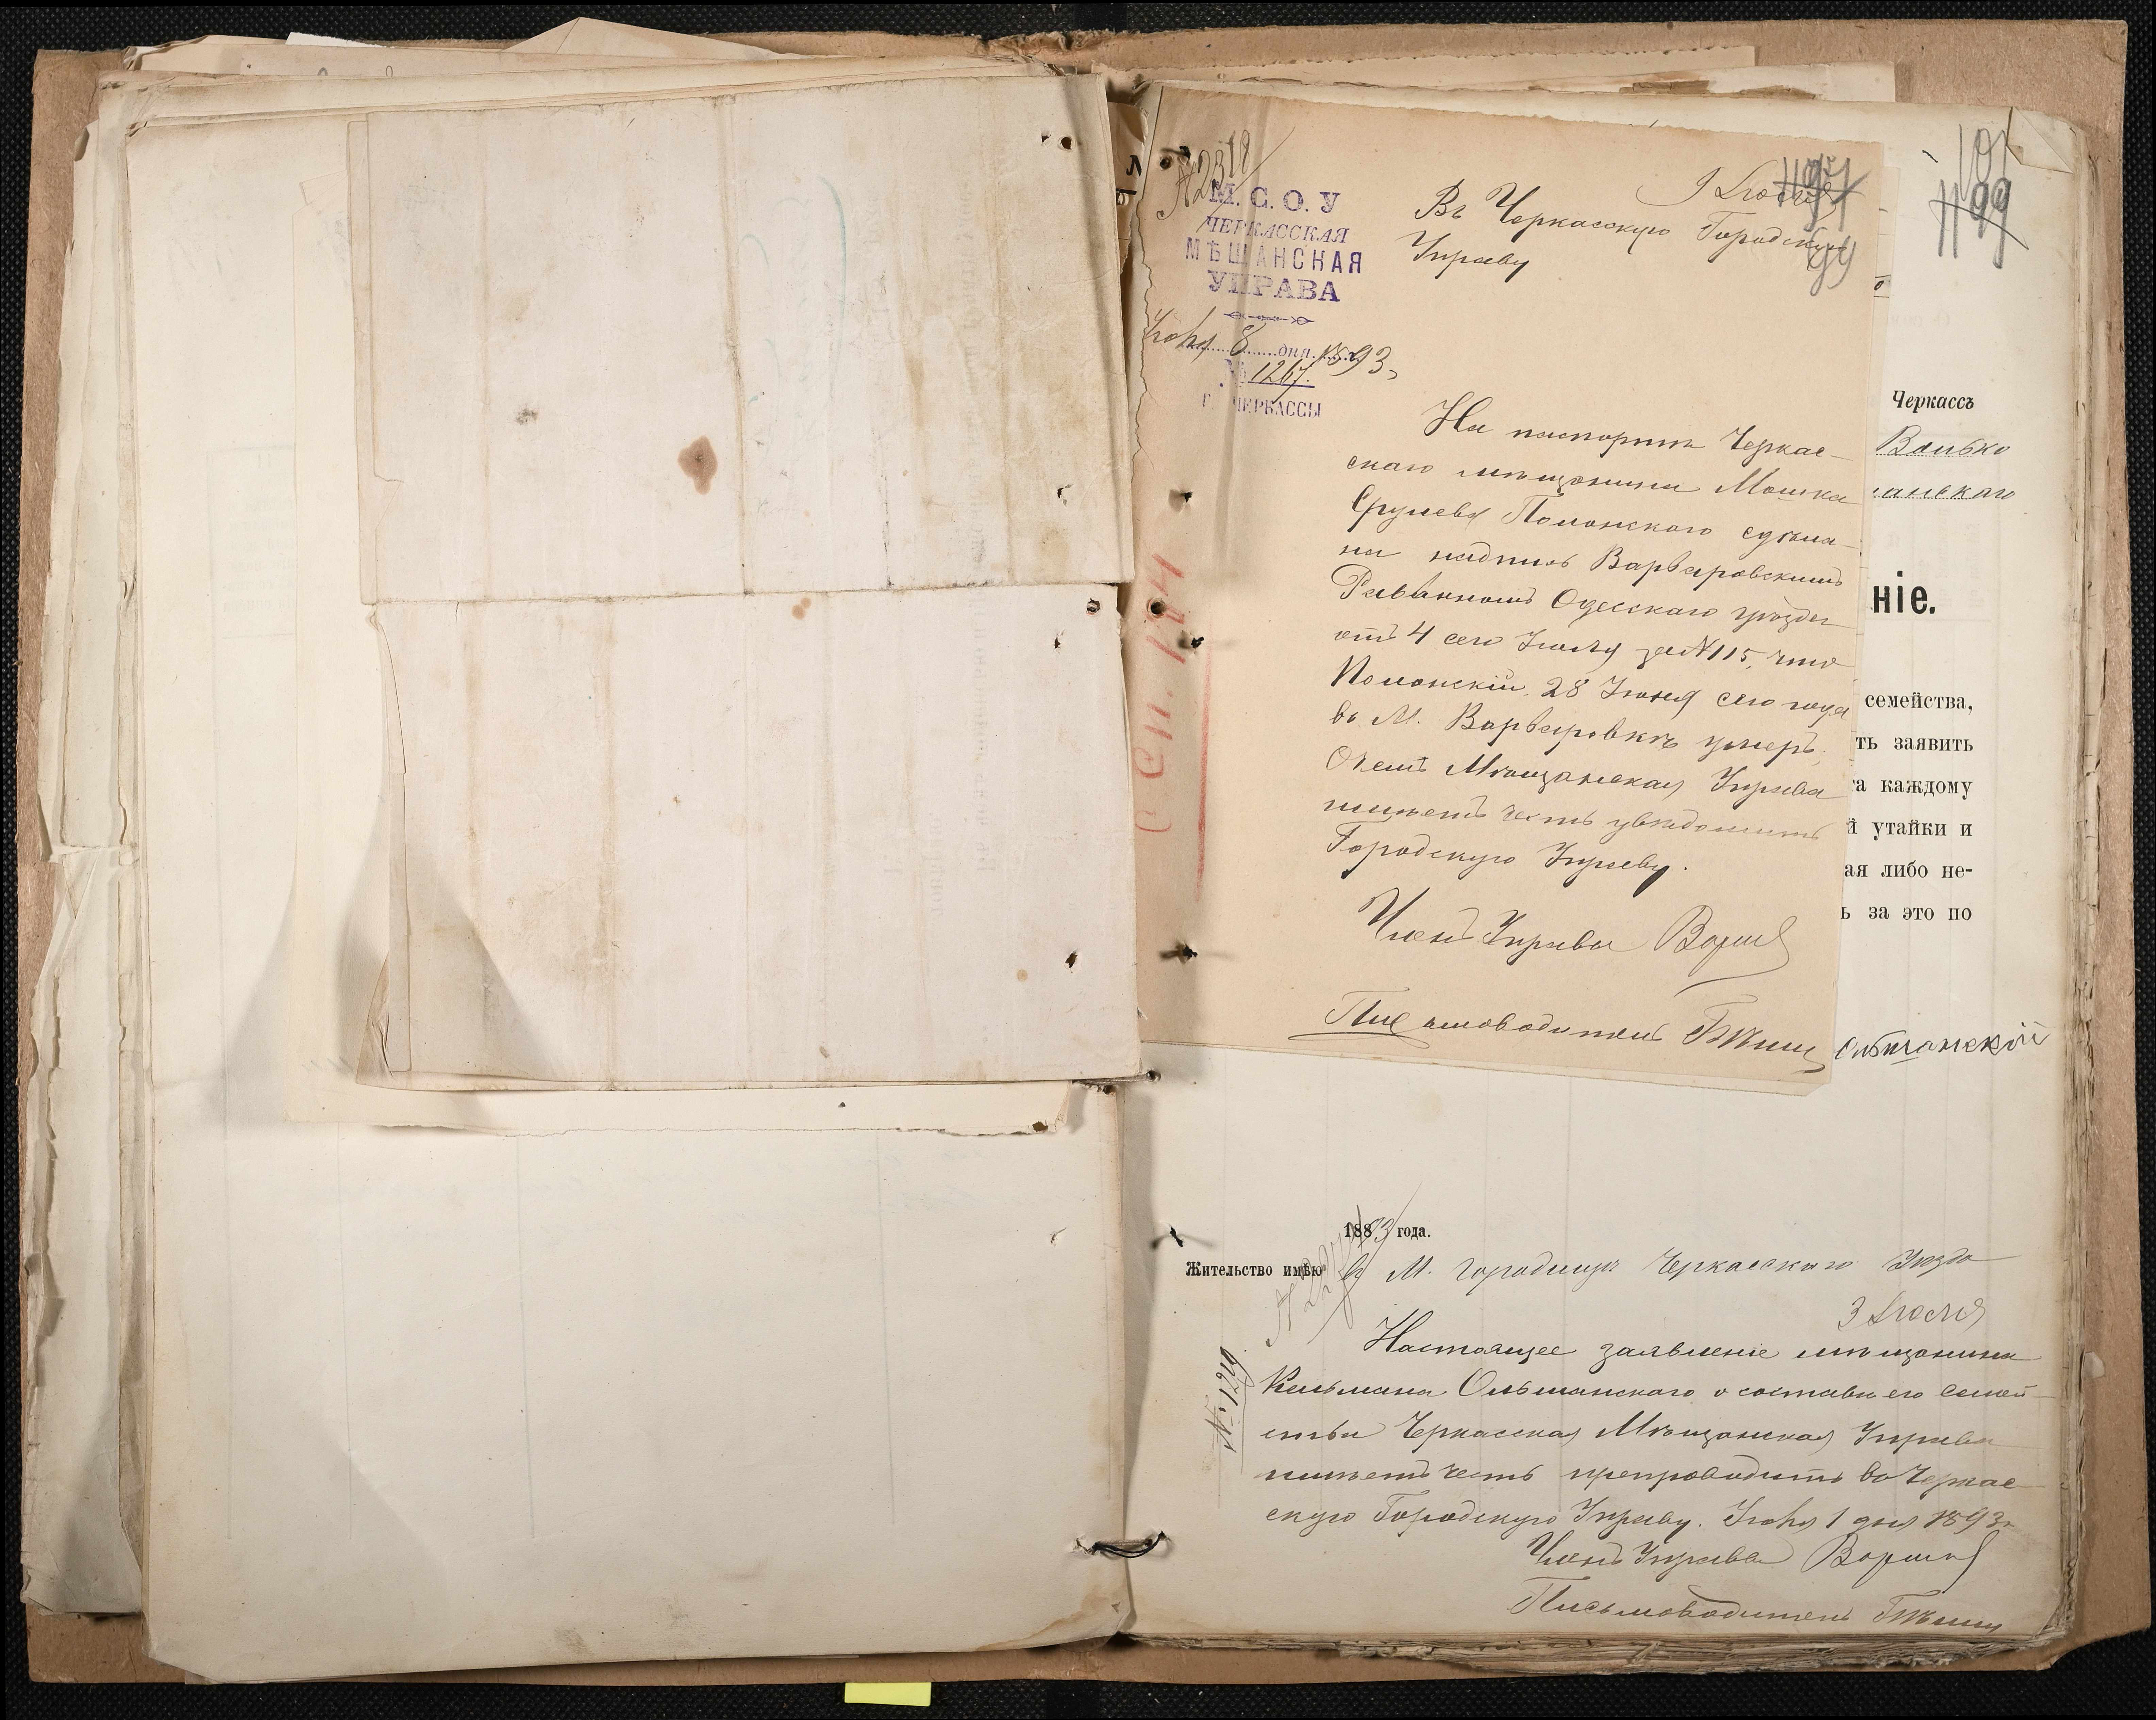 № 2318
М. С. О. У
ЧЕРКАССКАЯ
МѢЩАНСКАЯ
УПРАВА
Іюля 8 дня 1893
№ 1267.
Г. ЧЕРКАССЫ
Въ Черкасскую Городскую
Управу
На паспортѣ Черкас-
скаго мѣщанина Мошка
Срулева Полонскаго сдѣла-
на надпись Варваровскимъ
Раввиномъ Одесскаго уѣзда
отъ 4 сего Іюля за № 115, что
Полонскій 28 Іюня сего года
въ М. Варваровкѣ умеръ.
О чемъ Мѣщанская Управа
имѣетъ честь увѣдомить
Городскую Управу.
Членъ Управы
Письмоводитель
101
99
Черкассъ
ніе.
семейства,
ть заявить
та каждому
й утайки и
ая либо не-
ь за это по
Ольшанскій
1883 года.
Жительство имѣю въ М. Городищѣ Черкасскаго Уѣзда
3 Іюля
№ 1219
Настоящее заявленіе мѣщанина
Кельмана Ольшанскаго о составѣ его семей-
ства Черкасская Мѣщанская Управа
имѣетъ честь препроводить въ Черкас-
скую Городскую Управу. Іюля 1 дня 1893 г.
Членъ Управы
Письмоводитель